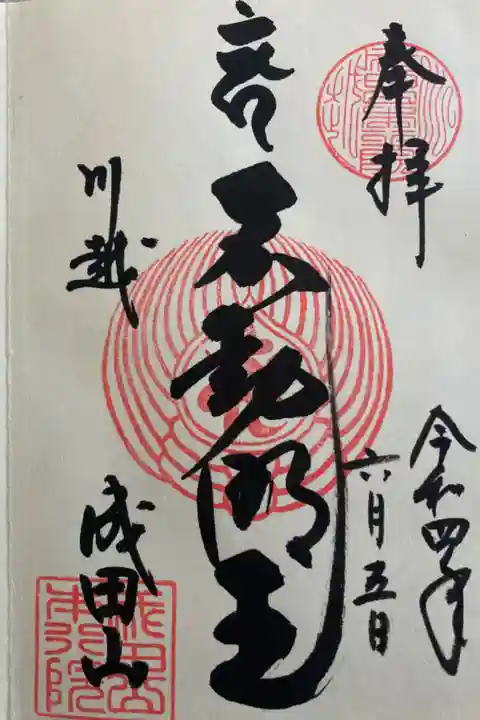 奉拝
令和四年
六月五日
不動明王
川越
成田山